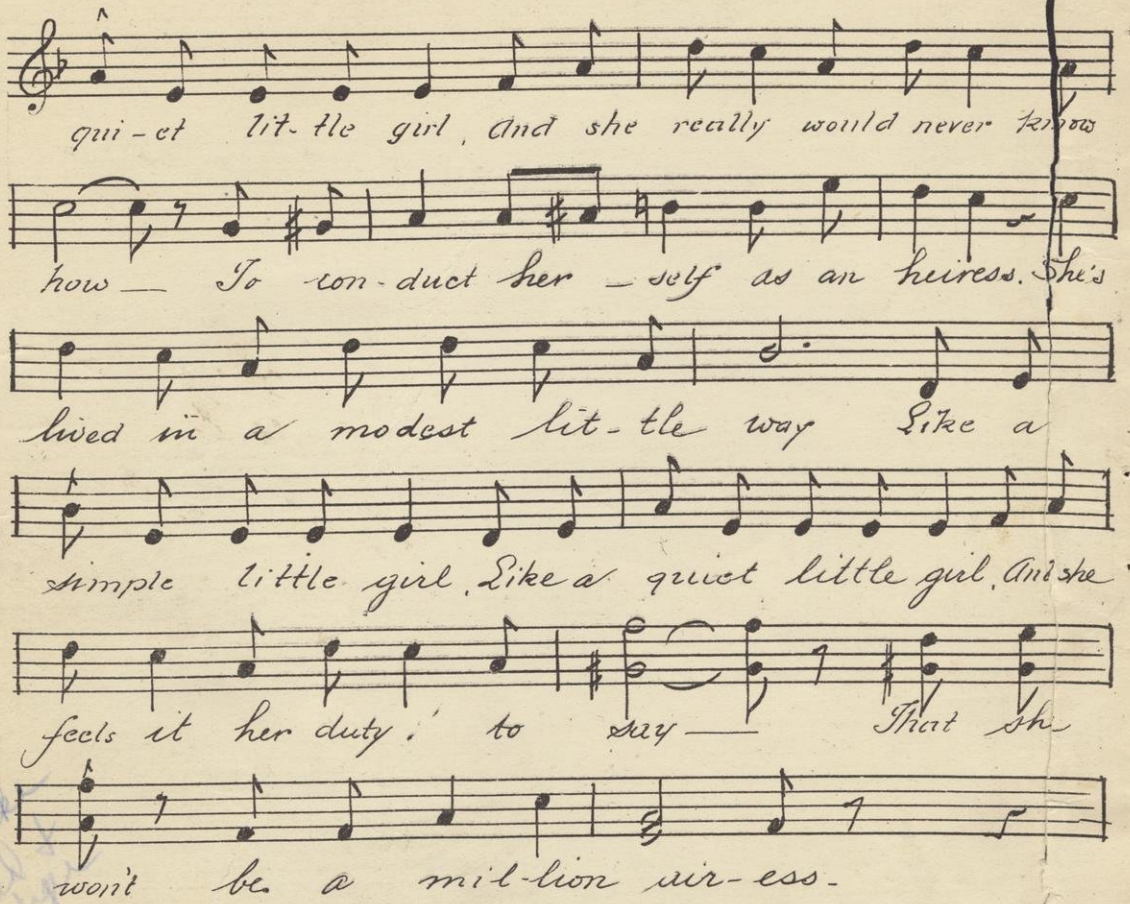 qui-et lit-tle girl, And she really would never know
how — To con-duct her-self as an heiress. She's
lived in a modest lit-tle way Like a
simple little girl, Like a quiet little girl, And she
feels it her duty! to say — That sh
won't be a mil-lion air-ess-